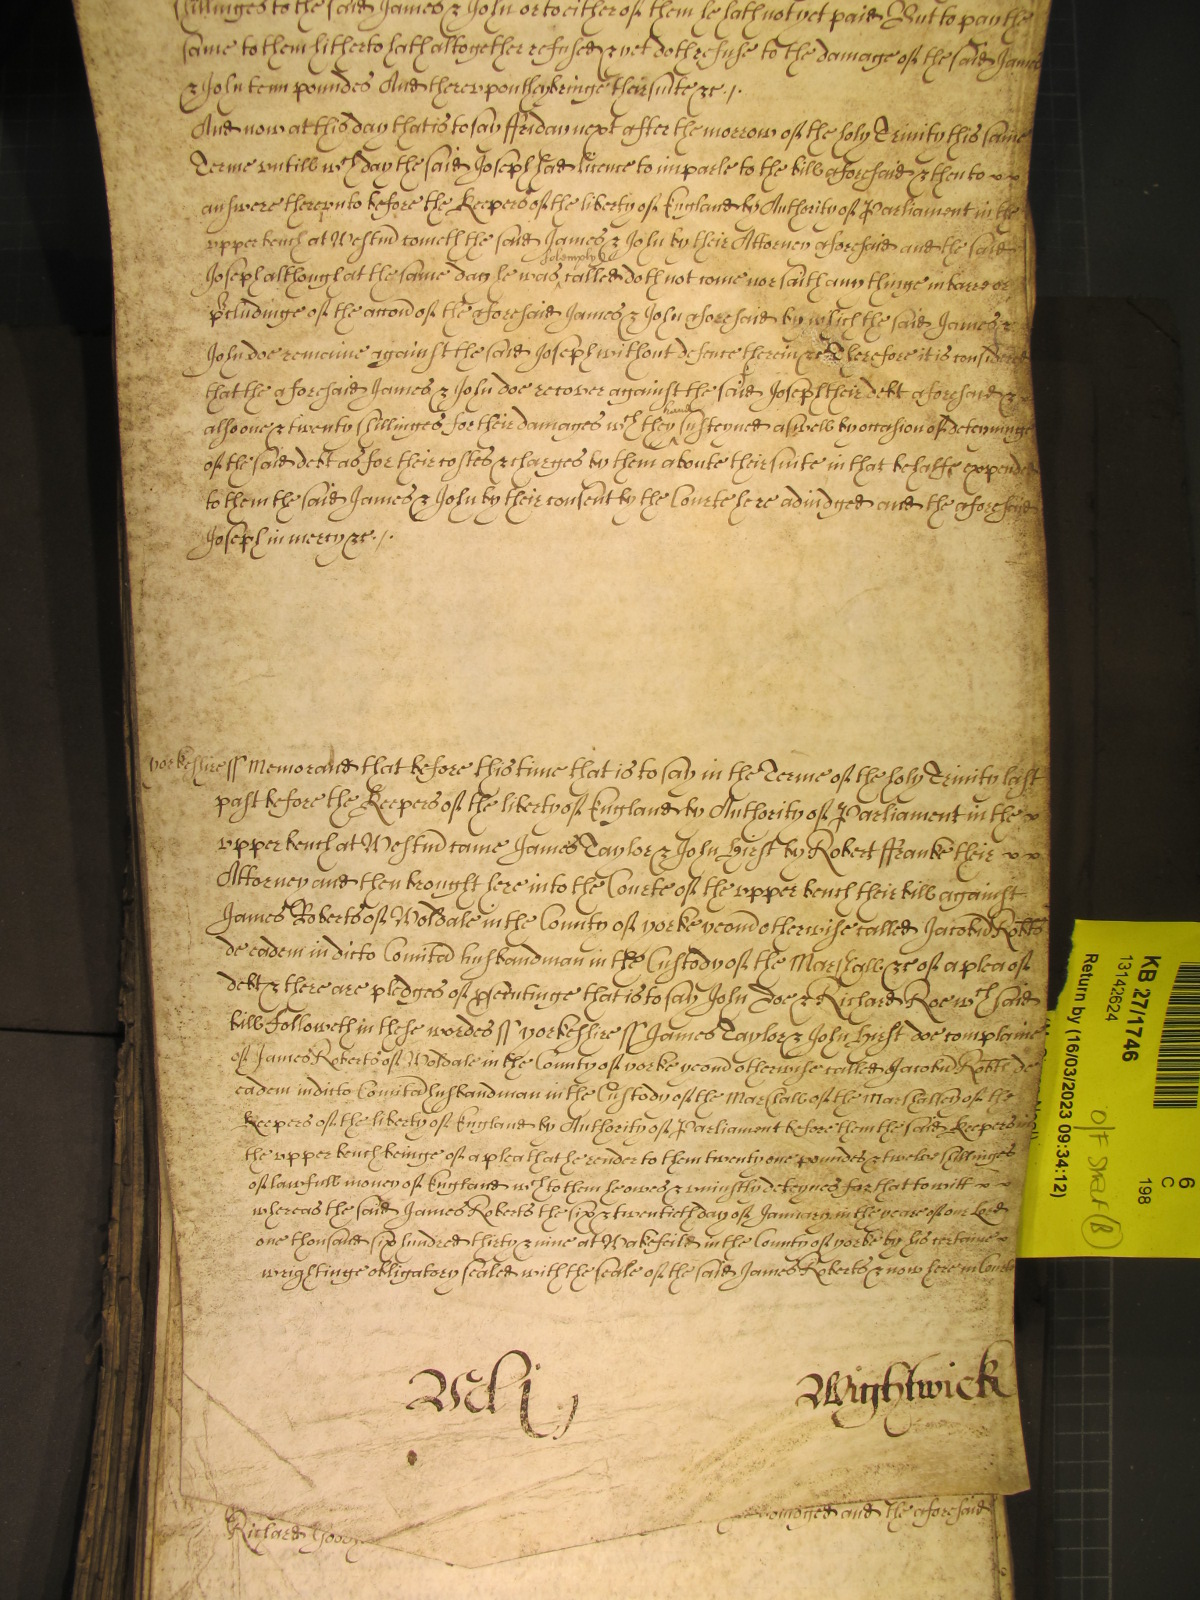 shillinges to the said James & John or to either of them he hath not yet paid But to pay the
same to them hitherto hath altogether refused & yet doth refuse to the damage of the said James
& John tenn poundes And thereupon they bringe their suite &c ./.
And now at this day that is to say ffriday next after the morrow of the holy Trinity this same
Terme untill wch day the said Joseph had licence to imparle to the bill aforesaid & then to
answere thereunto before the Keepers of the liberty of England by Authority of Parliament in the
upper bench at Westm come the said James & John by their Attorney aforesaid and the said
Joseph although at the same day he was solemply called doth not come nor saith any thinge in barre or
pcludinge of the accon of the aforesaid James & John aforesaid by which the said James &
John doe remaine against the said Joseph without defence therein &c Therefore it is considered
that the aforesaid James & John doe recover against the said Joseph their debt aforesaid &
also one & twenty shillinges for their damages wch they have susteyned aswell by occasion of deteyninge
of the said debt as for their costes & charges by them aboute their suite in that behalfe expended
to them the said James & John by their consent by the Courte here adiudged and the aforesaid
Joseph in mercy &c ./.
yorkeshire ss Memorand that before this time that is to say in the Terme of the holy Trinity last
past before the Keepers of the liberty of England by Authority of Parliament in the
upper bench at Westm came James Taylor & John Hirst by Robert ffranke their
Attorney and then brought here into the Courte of the upper bench their bill against
James Roberts of Woldale in the County of yorke yeom otherwise called Jacobu Robts
de eadem in dicto Comitat husbandman in the Custody of the Marshall &c of a plea of
debt & there are pledges of psecutinge that is to say John Doe & Richard Roe wch said
bill followeth in these wordes ss yorkeshire ss James Taylor & John Hirst doe complaine
of James Roberts of Woldale in the County of yorke yeom otherwise called Jacobu Robts de
eadem in dicto Comitat husbandman in the Custody of the Marshall of the Marshalsey of the
Keepers of the liberty of England by Authority of Parliament before them the said Keepers in
the upper bench beinge of a plea that he render to them twenty one poundes & twelve shillinges
of lawfull money of England wch to them he owes & uniustly deteynes for that to witt
whereas the said James Roberts the six & twentieth day of January in the yeare of our Lord
one thousand six hundred thirty & nine at Wakefeild in the County of yorke by his certaine
wrightinge obligatory sealed with the seale of the said James Roberts & now here in Courte
Wightwick
Richard
and the aforesaid
KB 27/1746
13142624
Return by (16/03/2023 09:34:12)
6
C
198